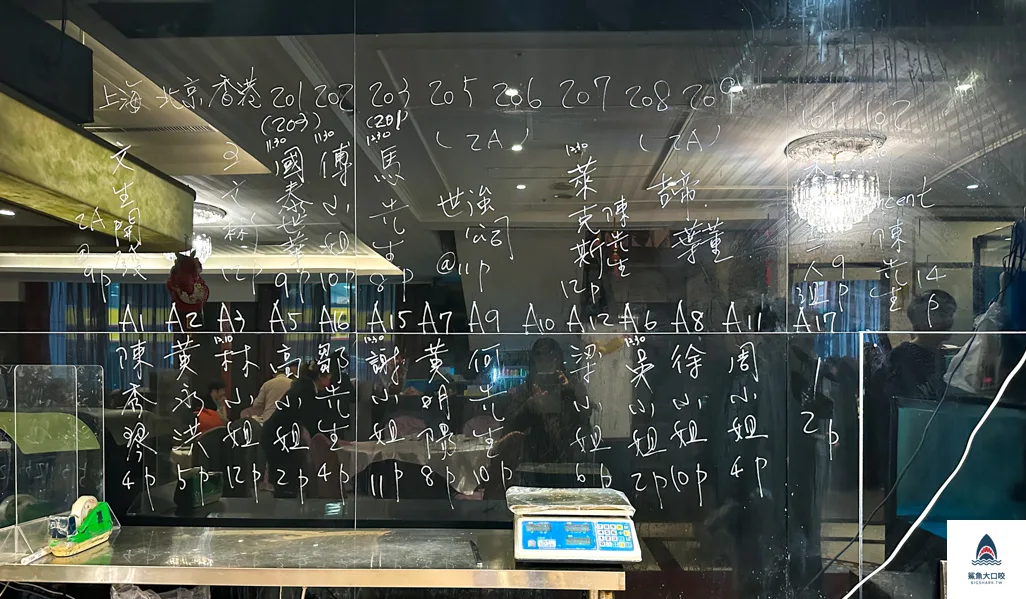 上海 北京 香港 201 202 203 205 206 207 208 209 101 102
(203) (201) (2A) (2A)
11:30 11:30 12:30 12:30
文生開發 2A 9p
12p
國泰世華 9p
傅小姐 10p
馬先生 8p
世強 @11p
萊克斯 陳先生 12p
董
9p
陳先生 14p
A1 A2 A3 A5 A16 A15 A7 A9 A10 A12 A6 A8 A11 A17
陳秀琴 4p
黃永洪 5p
林小姐 12p
高小姐 2p
鄒先生 4p
12:30 謝小姐 11p
黃明陽 8p
何先生 10p
梁小姐 6p
12:30 吳小姐 2p
徐小姐 10p
周小姐 4p
2p
鯊魚大口咬
BIGSHARK.TW